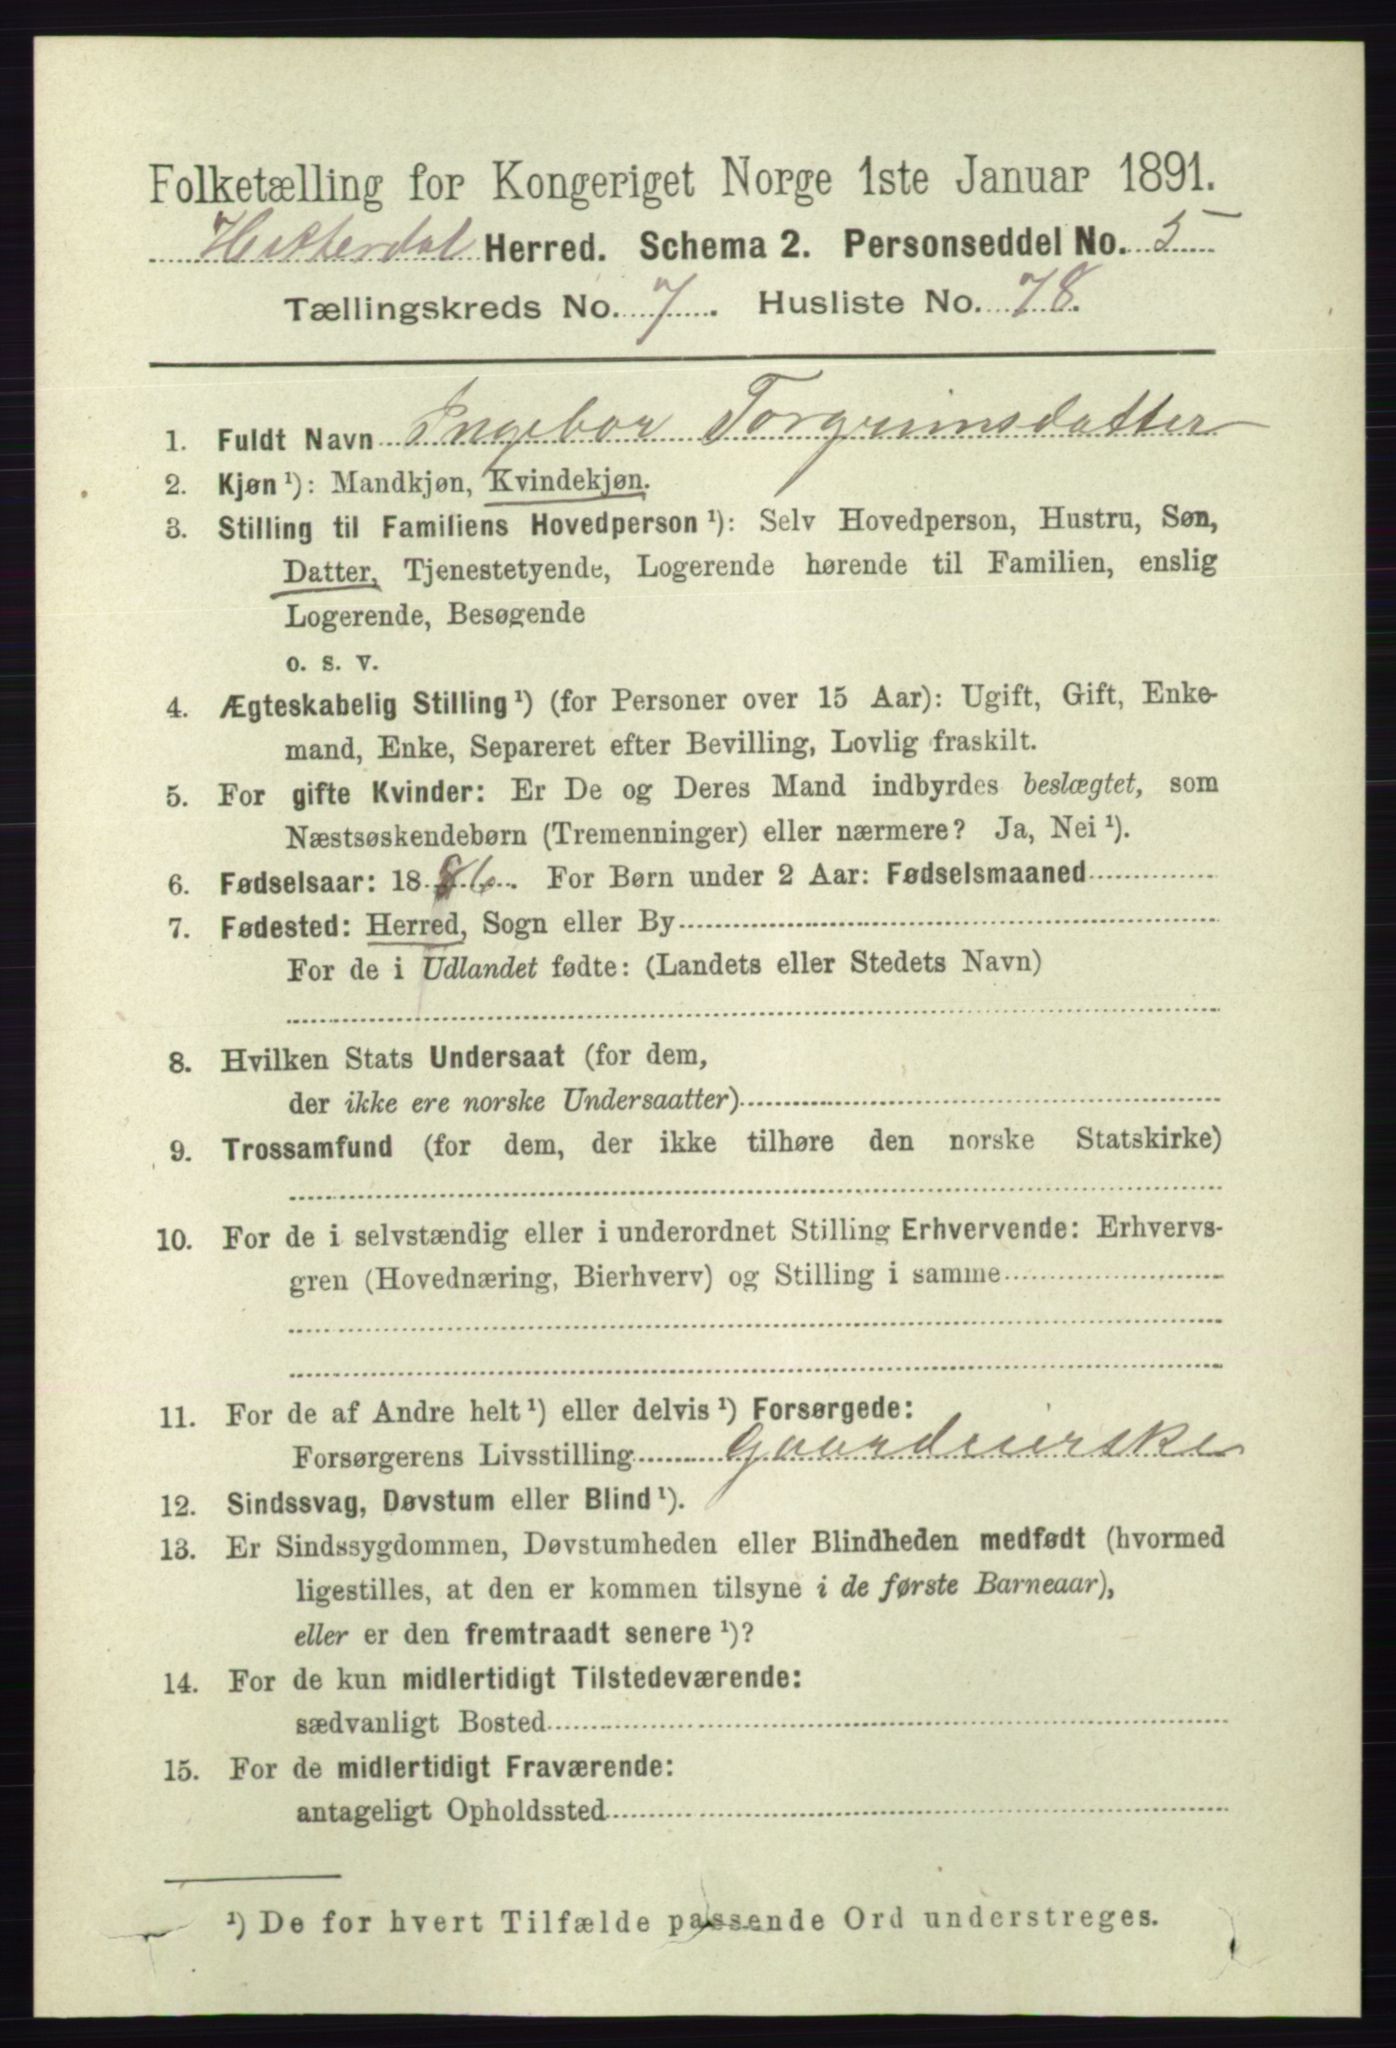 Folketælling for Kongeriget Norge 1ste Januar 1891.
Hitterdal Herred. Schema 2. Personseddel No. 5
Tællingskreds No. 7. Husliste No. 78.
1. Fuldt Navn Ingebor Torgrimsdatter
2. Kjøn ¹): Mandkjøn, Kvindekjøn.
3. Stilling til Familiens Hovedperson ¹): Selv Hovedperson, Hustru, Søn,
Datter, Tjenestetyende, Logerende hørende til Familien, enslig
Logerende, Besøgende
o. s. v.
4. Ægteskabelig Stilling ¹) (for Personer over 15 Aar): Ugift, Gift, Enke-
mand, Enke, Separeret efter Bevilling, Lovlig fraskilt.
5. For gifte Kvinder: Er De og Deres Mand indbyrdes beslægtet, som
Næstsøskendebørn (Tremenninger) eller nærmere? Ja, Nei ¹).
6. Fødselsaar: 1886. For Børn under 2 Aar: Fødselsmaaned
7. Fødested: Herred, Sogn eller By
For de i Udlandet fødte: (Landets eller Stedets Navn)
8. Hvilken Stats Undersaat (for dem,
der ikke ere norske Undersaatter)
9. Trossamfund (for dem, der ikke tilhøre den norske Statskirke)
10. For de i selvstændig eller i underordnet Stilling Erhvervende: Erhvervs-
gren (Hovednæring, Bierhverv) og Stilling i samme
11. For de af Andre helt ¹) eller delvis ¹) Forsørgede:
Forsørgerens Livsstilling Gaardeierske
12. Sindssvag, Døvstum eller Blind ¹).
13. Er Sindssygdommen, Døvstumheden eller Blindheden medfødt (hvormed
ligestilles, at den er kommen tilsyne i de første Barneaar),
eller er den fremtraadt senere ¹)?
14. For de kun midlertidigt Tilstedeværende:
sædvanligt Bosted
15. For de midlertidigt Fraværende:
antageligt Opholdssted
¹) De for hvert Tilfælde passende Ord understreges.